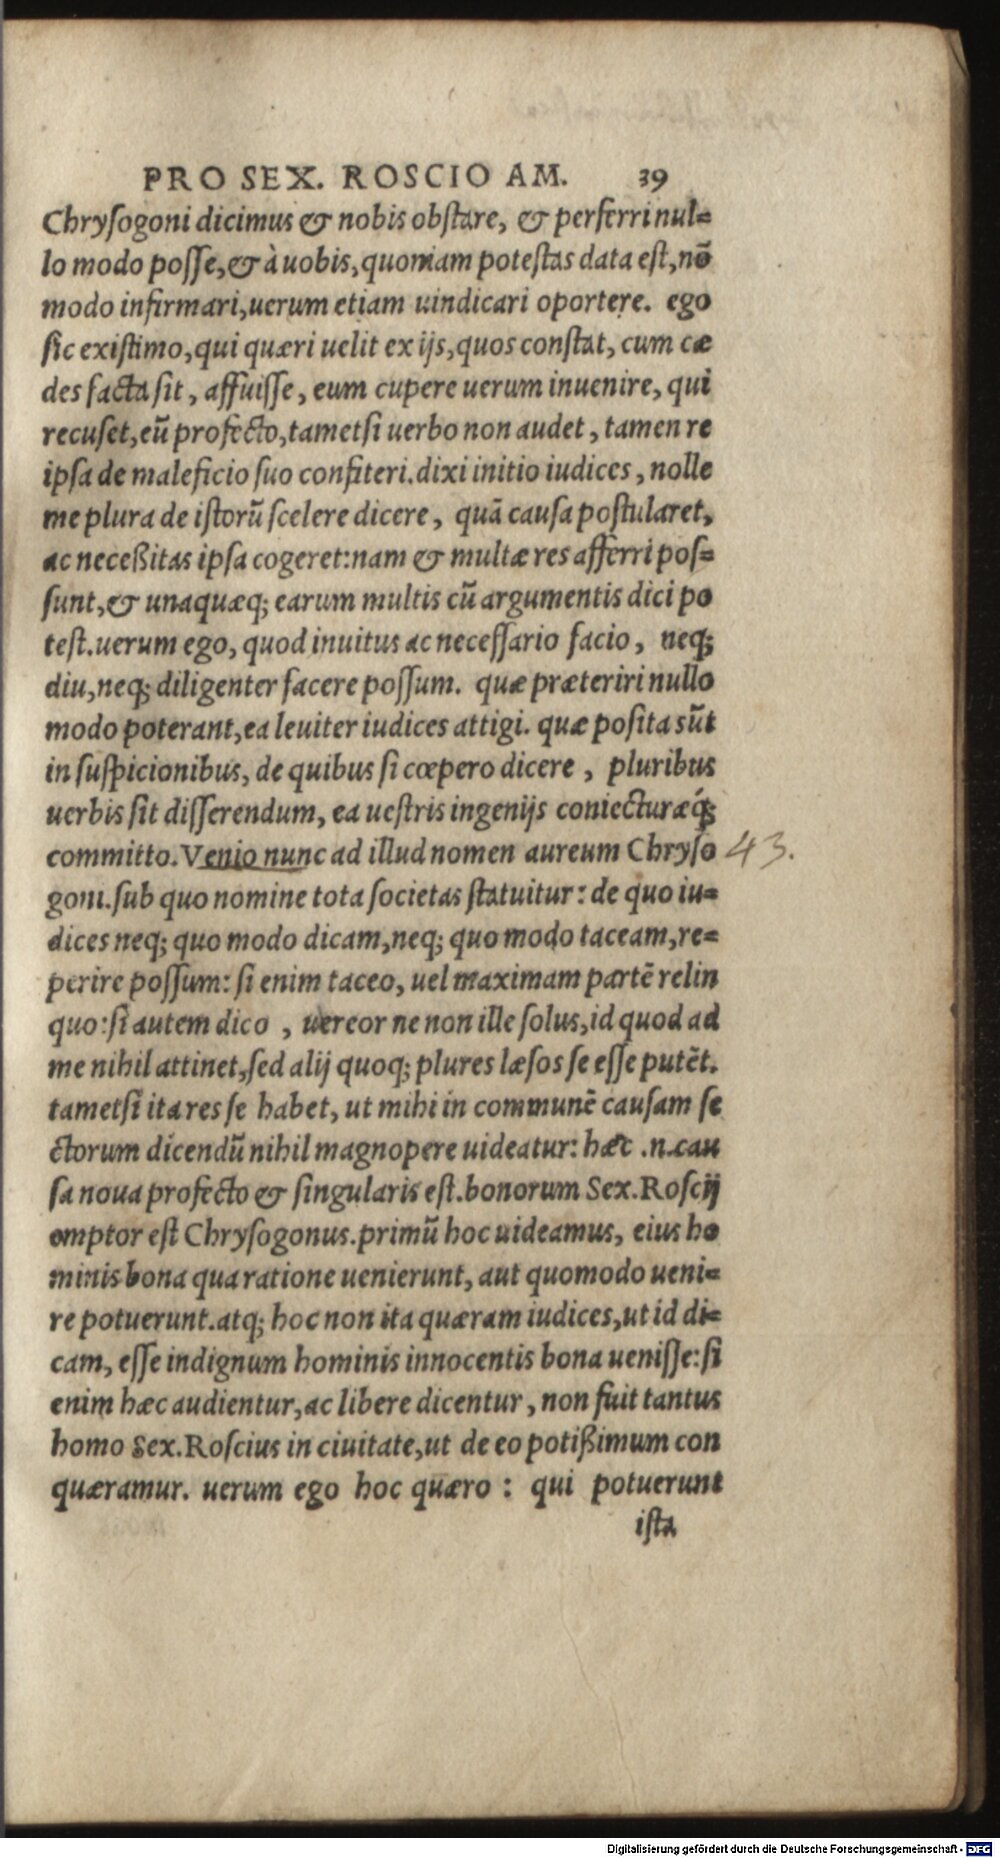 PRO SEX. ROSCIO AM. 39
Chrysogoni dicimus & nobis obstare, & perferri nul=
lo modo posse, & à uobis, quoniam potestas data est, nõ
modo infirmari, uerum etiam uindicari oportere. ego
sic existimo, qui quæri uelit ex ijs, quos constat, cum cæ
des facta sit, affuisse, eum cupere uerum inuenire, qui
recuset, eũ profecto, tametsi uerbo non audet, tamen re
ipsa de maleficio suo confiteri. dixi initio iudices, nolle
me plura de istorũ scelere dicere, quã causa postularet,
ac neceßitas ipsa cogeret: nam & multæ res afferri pos=
sunt, & unaquæq; earum multis cũ argumentis dici po
test. uerum ego, quod inuitus ac necessario facio, neq;
diu, neq; diligenter facere possum. quæ præteriri nullo
modo poterant, ea leuiter iudices attigi. quæ posita sũt
in suspicionibus, de quibus si cœpero dicere, pluribus
uerbis sit disserendum, ea uestris ingenijs coniecturæq́;
committo. Venio nunc ad illud nomen aureum Chryso 43.
goni. sub quo nomine tota societas statuitur: de quo iu=
dices neq; quo modo dicam, neq; quo modo taceam, re=
perire possum: si enim taceo, uel maximam partẽ relin
quo: si autem dico, uereor ne non ille solus, id quod ad
me nihil attinet, sed alij quoq; plures læsos se esse putẽt.
tametsi ita res se habet, ut mihi in communẽ causam se
ctorum dicendũ nihil magnopere uideatur: hæc .n. cau
sa noua profecto & singularis est. bonorum Sex. Roscij
emptor est Chrysogonus. primũ hoc uideamus, eius ho
minis bona qua ratione uenierunt, aut quomodo ueni=
re potuerunt. atq; hoc non ita quæram iudices, ut id di=
cam, esse indignum hominis innocentis bona uenisse: si
enim hæc audientur, ac libere dicentur, non fuit tantus
homo Sex. Roscius in ciuitate, ut de eo potißimum con
quæramur. uerum ego hoc quæro: qui potuerunt
ista
Digitalisierung gefördert durch die Deutsche Forschungsgemeinschaft - DFG